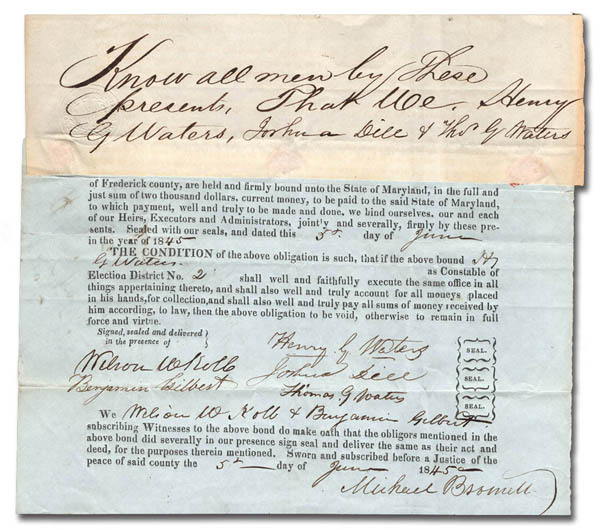 Know all men by These
presents, That We. Henry
G Waters, Joshua Dill & Thos G Waters
of Frederick county, are held and firmly bound unto the State of Maryland, in the full and
just sum of two thousand dollars. current money, to be paid to the said State of Maryland,
to which payment, well and truly to be made and done. we bind ourselves. our and each
of our Heirs, Executors and Administrators, joint'y and severally, firmly by these pre-
sents. Sealed with our seals, and dated this 5th day of June
in the year of 1845
THE CONDITION of the above obligation is such, that if the above bound H
G Waters as Constable of
Election District No. 2 shall well and faithfully execute the same office in all
things appertaining thereto, and shall also well and truly account for all moneys placed
in his hands, for collection, and shall also well and truly pay all sums of money received by
him according, to law, then the above obligation to be void, otherwise to remain in full
force and virtue.
Signed, sealed and delivered
in the presence of
Henry G Waters SEAL.
Wilson W Kolb Joshua Dill SEAL.
Benjamin Gilbert Thomas G Waters SEAL.
We Wilson W Kolb & Benjamin Gilbert
subscribing Witnesses to the above bond do make oath that the obligors mentioned in the
above bond did severally in our presence sign seal and deliver the same as their act and
deed, for the purposes therein mentioned. Sworn and subscribed before a Justice of the
peace of said county the 5th day of June 1845
Michael